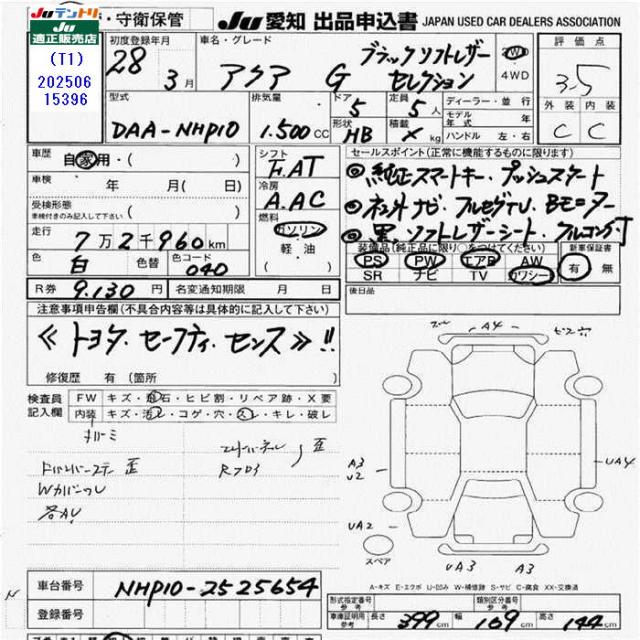 Juテントリ
JU
適正販売店
・守衛保管
JU 愛知 出品申込書 JAPAN USED CAR DEALERS ASSOCIATION
(T1)
202506
15396
初度登録年月
28 3月
車名・グレード
アクア G ブラックソフトレザー
セレクション
2WD
4WD
評価点
3.5
外装 内装
C C
型式
DAA-NHP10
排気量
1.500cc
ドア
5
形状
HB
定員
5人
積載
× kg
ディーラー・並行
モデル年式
ハンドル 左・右
車歴
自家用・( )
車検
年 月(日)
受検形態
車検付きのみ記入して下さい ( )
走行
7万2千960km
色
白
色替
色コード
040
シフト
F.AT
冷房
A.AC
燃料
ガソリン
軽・油
セールスポイント(正常に機能するものに限ります)
◎純正スマートキー・プッシュスタート
◎ネットナビ・フルセグTV・Bモニター
◎黒ソフトレザーシート・フルコン付
装備品(純正品に限り○をつけてください)
PS PW エアB AW
SR ナビ TV カワシー
新車保証書
有 無
後日品
R券 9.130円
名変通知期限 月 日
注意事項申告欄(不具合内容等は具体的に記入して下さい)
≪トヨタ・セーフティ・センス≫!!
修復歴 有(箇所 )
検査員
記入欄
FW キズ・飛石・ヒビ割・リペア跡・X要
内装 キズ・汚レ・コゲ・穴・スレ・キレ・破レ
A4
A3
U2
UA4
UA2
スペア
UA3 A3
A-キズ E-エクボ U-凹み W-補修跡 S-サビ C-腐食 XX-交換済
車台番号 NHP10-2525654
登録番号
形式指定番号
参考
類別区分番号
参考
車庫証明用
参考
長さ 399cm 幅 169cm 高さ 144cm